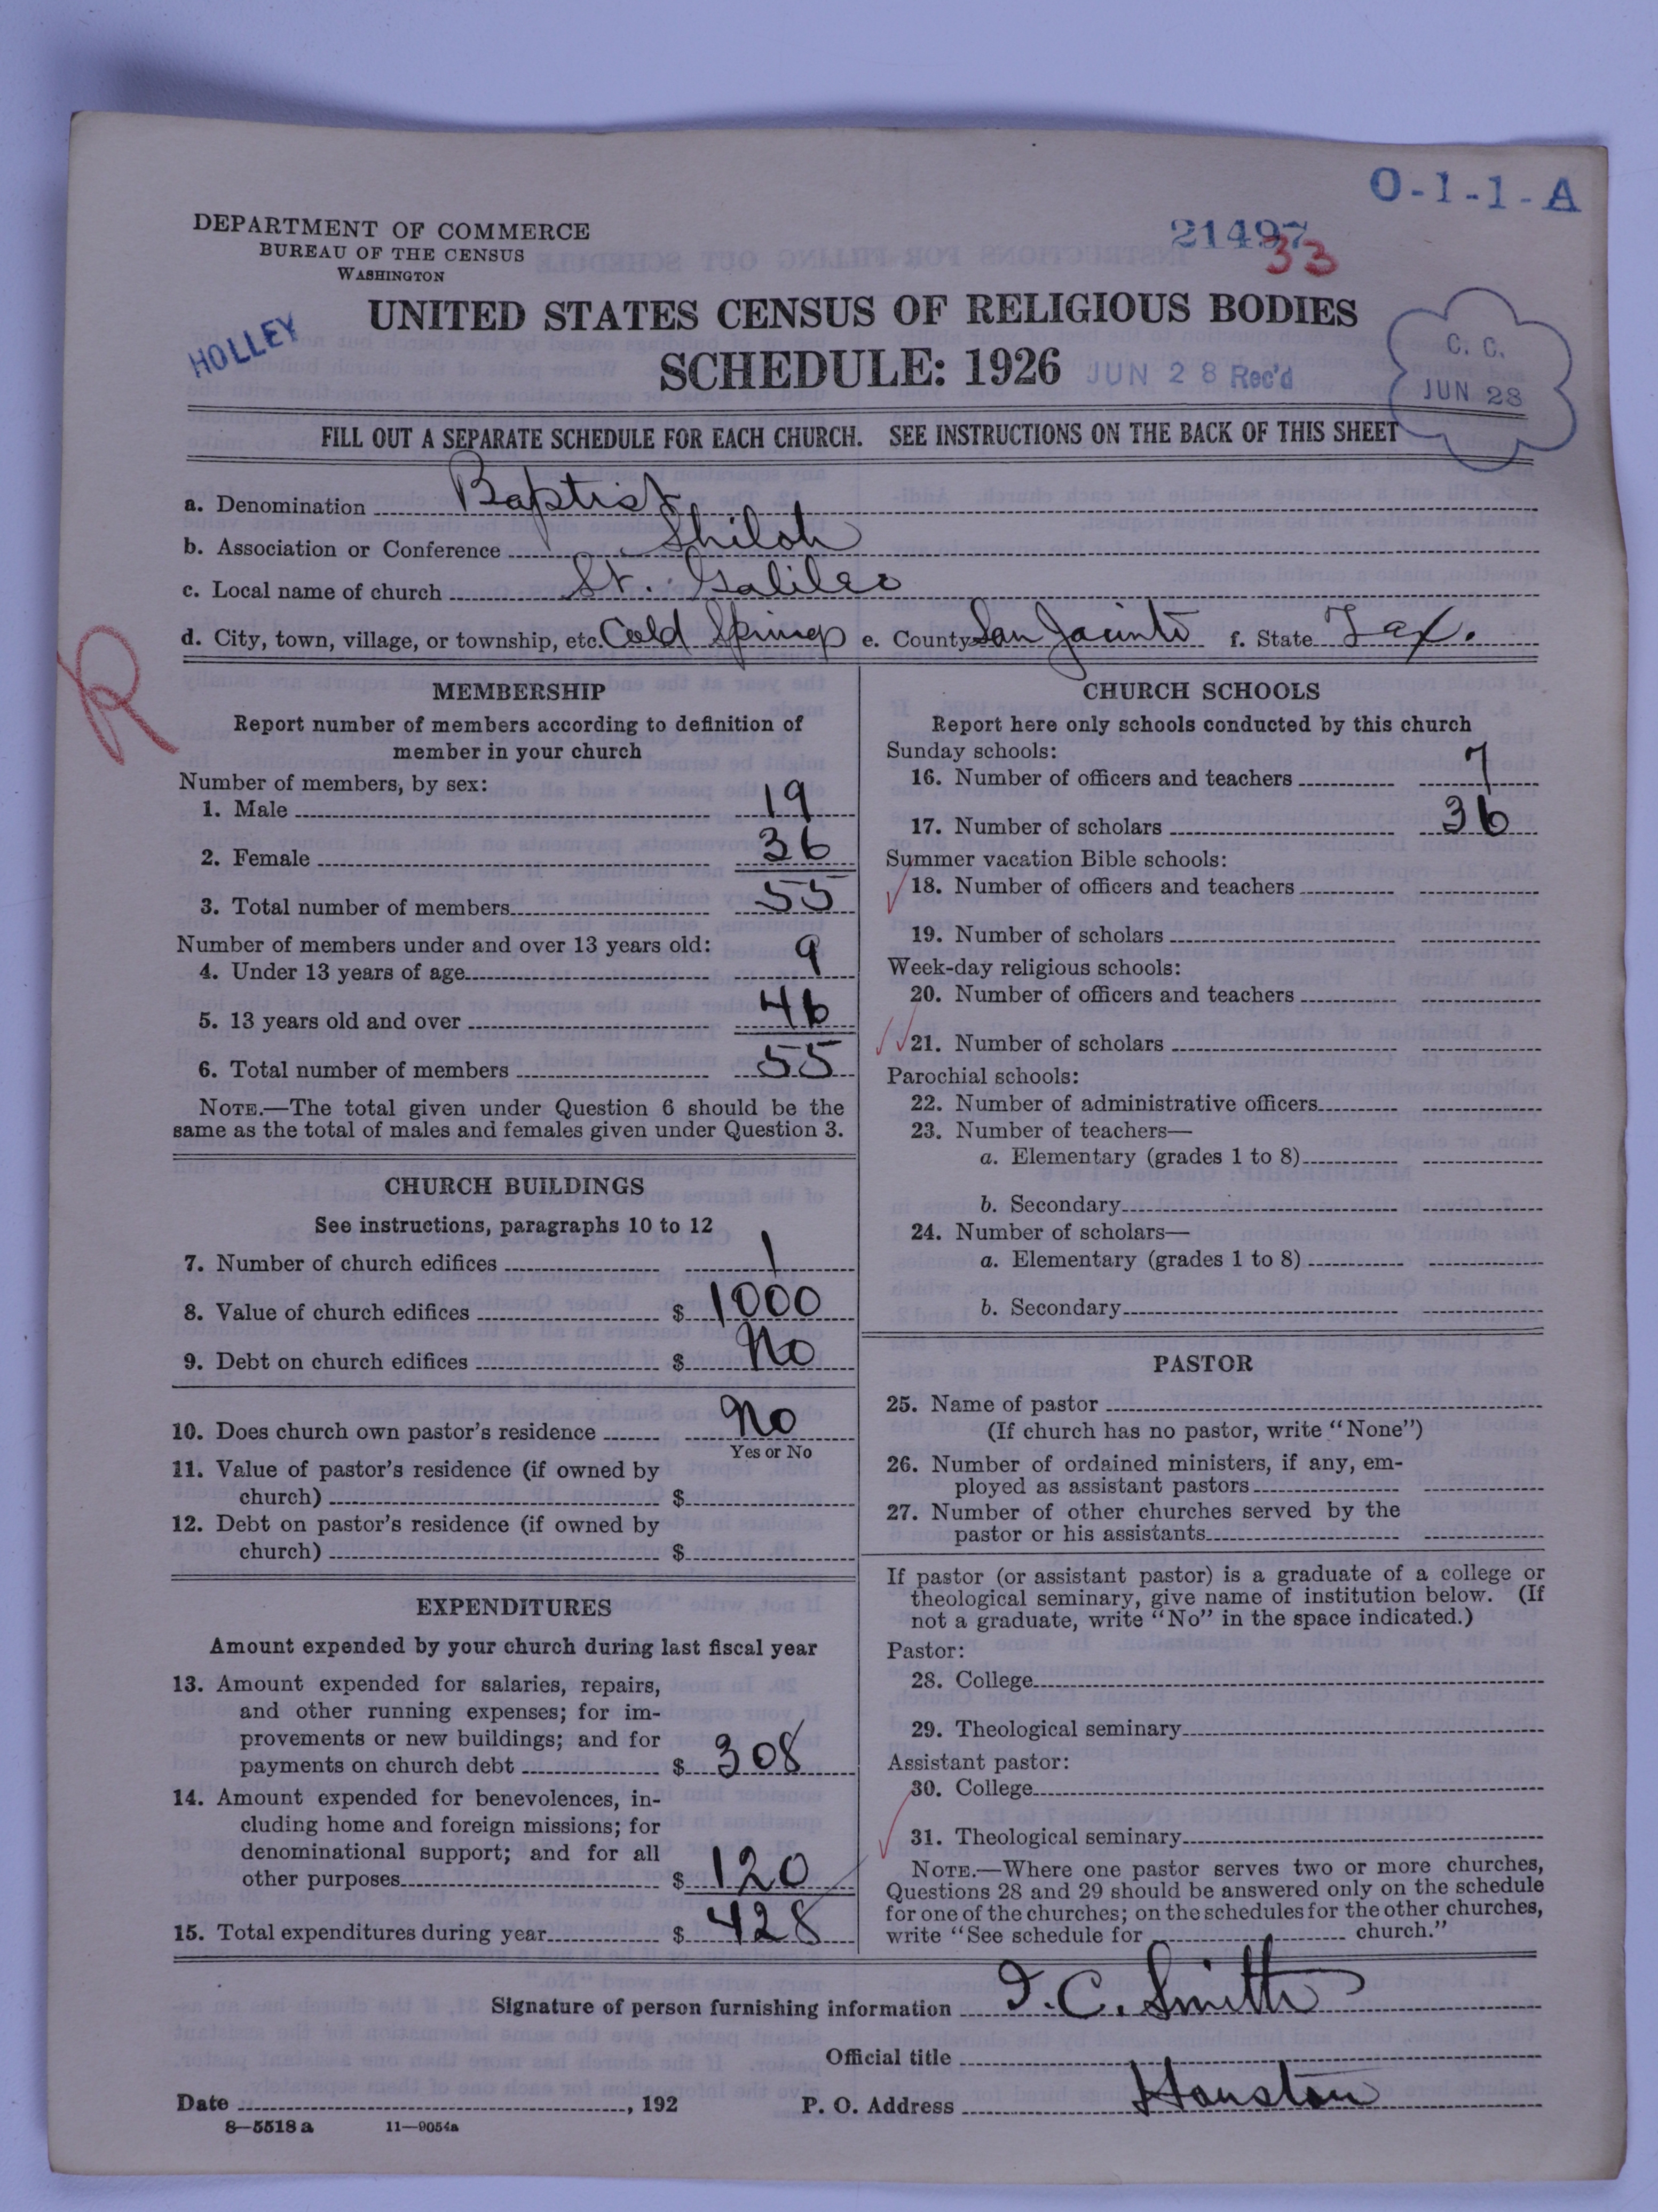 O-1-1-A
DEPARTMENT OF COMMERCE
BUREAU OF THE CENSUS
WASHINGTON
21497
33
UNITED STATES CENSUS OF RELIGIOUS BODIES
HOLLEY
SCHEDULE: 1926 JUN 28 Rec'd
C. C.
JUN 28
FILL OUT A SEPARATE SCHEDULE FOR EACH CHURCH. SEE INSTRUCTIONS ON THE BACK OF THIS SHEET
a. Denomination Baptist
b. Association or Conference Shiloh
c. Local name of church St. Galileo
d. City, town, village, or township, etc. Cold Springs e. County San Jacinto f. State Tex.
R
MEMBERSHIP
Report number of members according to definition of
member in your church
Number of members, by sex:
1. Male 19
2. Female 36
3. Total number of members 55
Number of members under and over 13 years old:
4. Under 13 years of age 9
5. 13 years old and over 46
6. Total number of members 55
NOTE.—The total given under Question 6 should be the
same as the total of males and females given under Question 3.
CHURCH BUILDINGS
See instructions, paragraphs 10 to 12
7. Number of church edifices 1
8. Value of church edifices $ 1000
9. Debt on church edifices $ No
10. Does church own pastor's residence No
Yes or No
11. Value of pastor's residence (if owned by
church) $
12. Debt on pastor's residence (if owned by
church) $
EXPENDITURES
Amount expended by your church during last fiscal year
13. Amount expended for salaries, repairs,
and other running expenses; for im-
provements or new buildings; and for
payments on church debt $ 308
14. Amount expended for benevolences, in-
cluding home and foreign missions; for
denominational support; and for all
other purposes $ 120
15. Total expenditures during year $ 428
CHURCH SCHOOLS
Report here only schools conducted by this church
Sunday schools:
16. Number of officers and teachers 7
17. Number of scholars 36
Summer vacation Bible schools:
18. Number of officers and teachers
19. Number of scholars
Week-day religious schools:
20. Number of officers and teachers
21. Number of scholars
Parochial schools:
22. Number of administrative officers
23. Number of teachers—
a. Elementary (grades 1 to 8)
b. Secondary
24. Number of scholars—
a. Elementary (grades 1 to 8)
b. Secondary
PASTOR
25. Name of pastor
(If church has no pastor, write "None")
26. Number of ordained ministers, if any, em-
ployed as assistant pastors
27. Number of other churches served by the
pastor or his assistants
If pastor (or assistant pastor) is a graduate of a college or
theological seminary, give name of institution below. (If
not a graduate, write "No" in the space indicated.)
Pastor:
28. College
29. Theological seminary
Assistant pastor:
30. College
31. Theological seminary
NOTE.—Where one pastor serves two or more churches,
Questions 28 and 29 should be answered only on the schedule
for one of the churches; on the schedules for the other churches,
write "See schedule for church."
Signature of person furnishing information I. C. Smith
Official title
Date , 192 P. O. Address Houston
8—5518 a 11—9054a